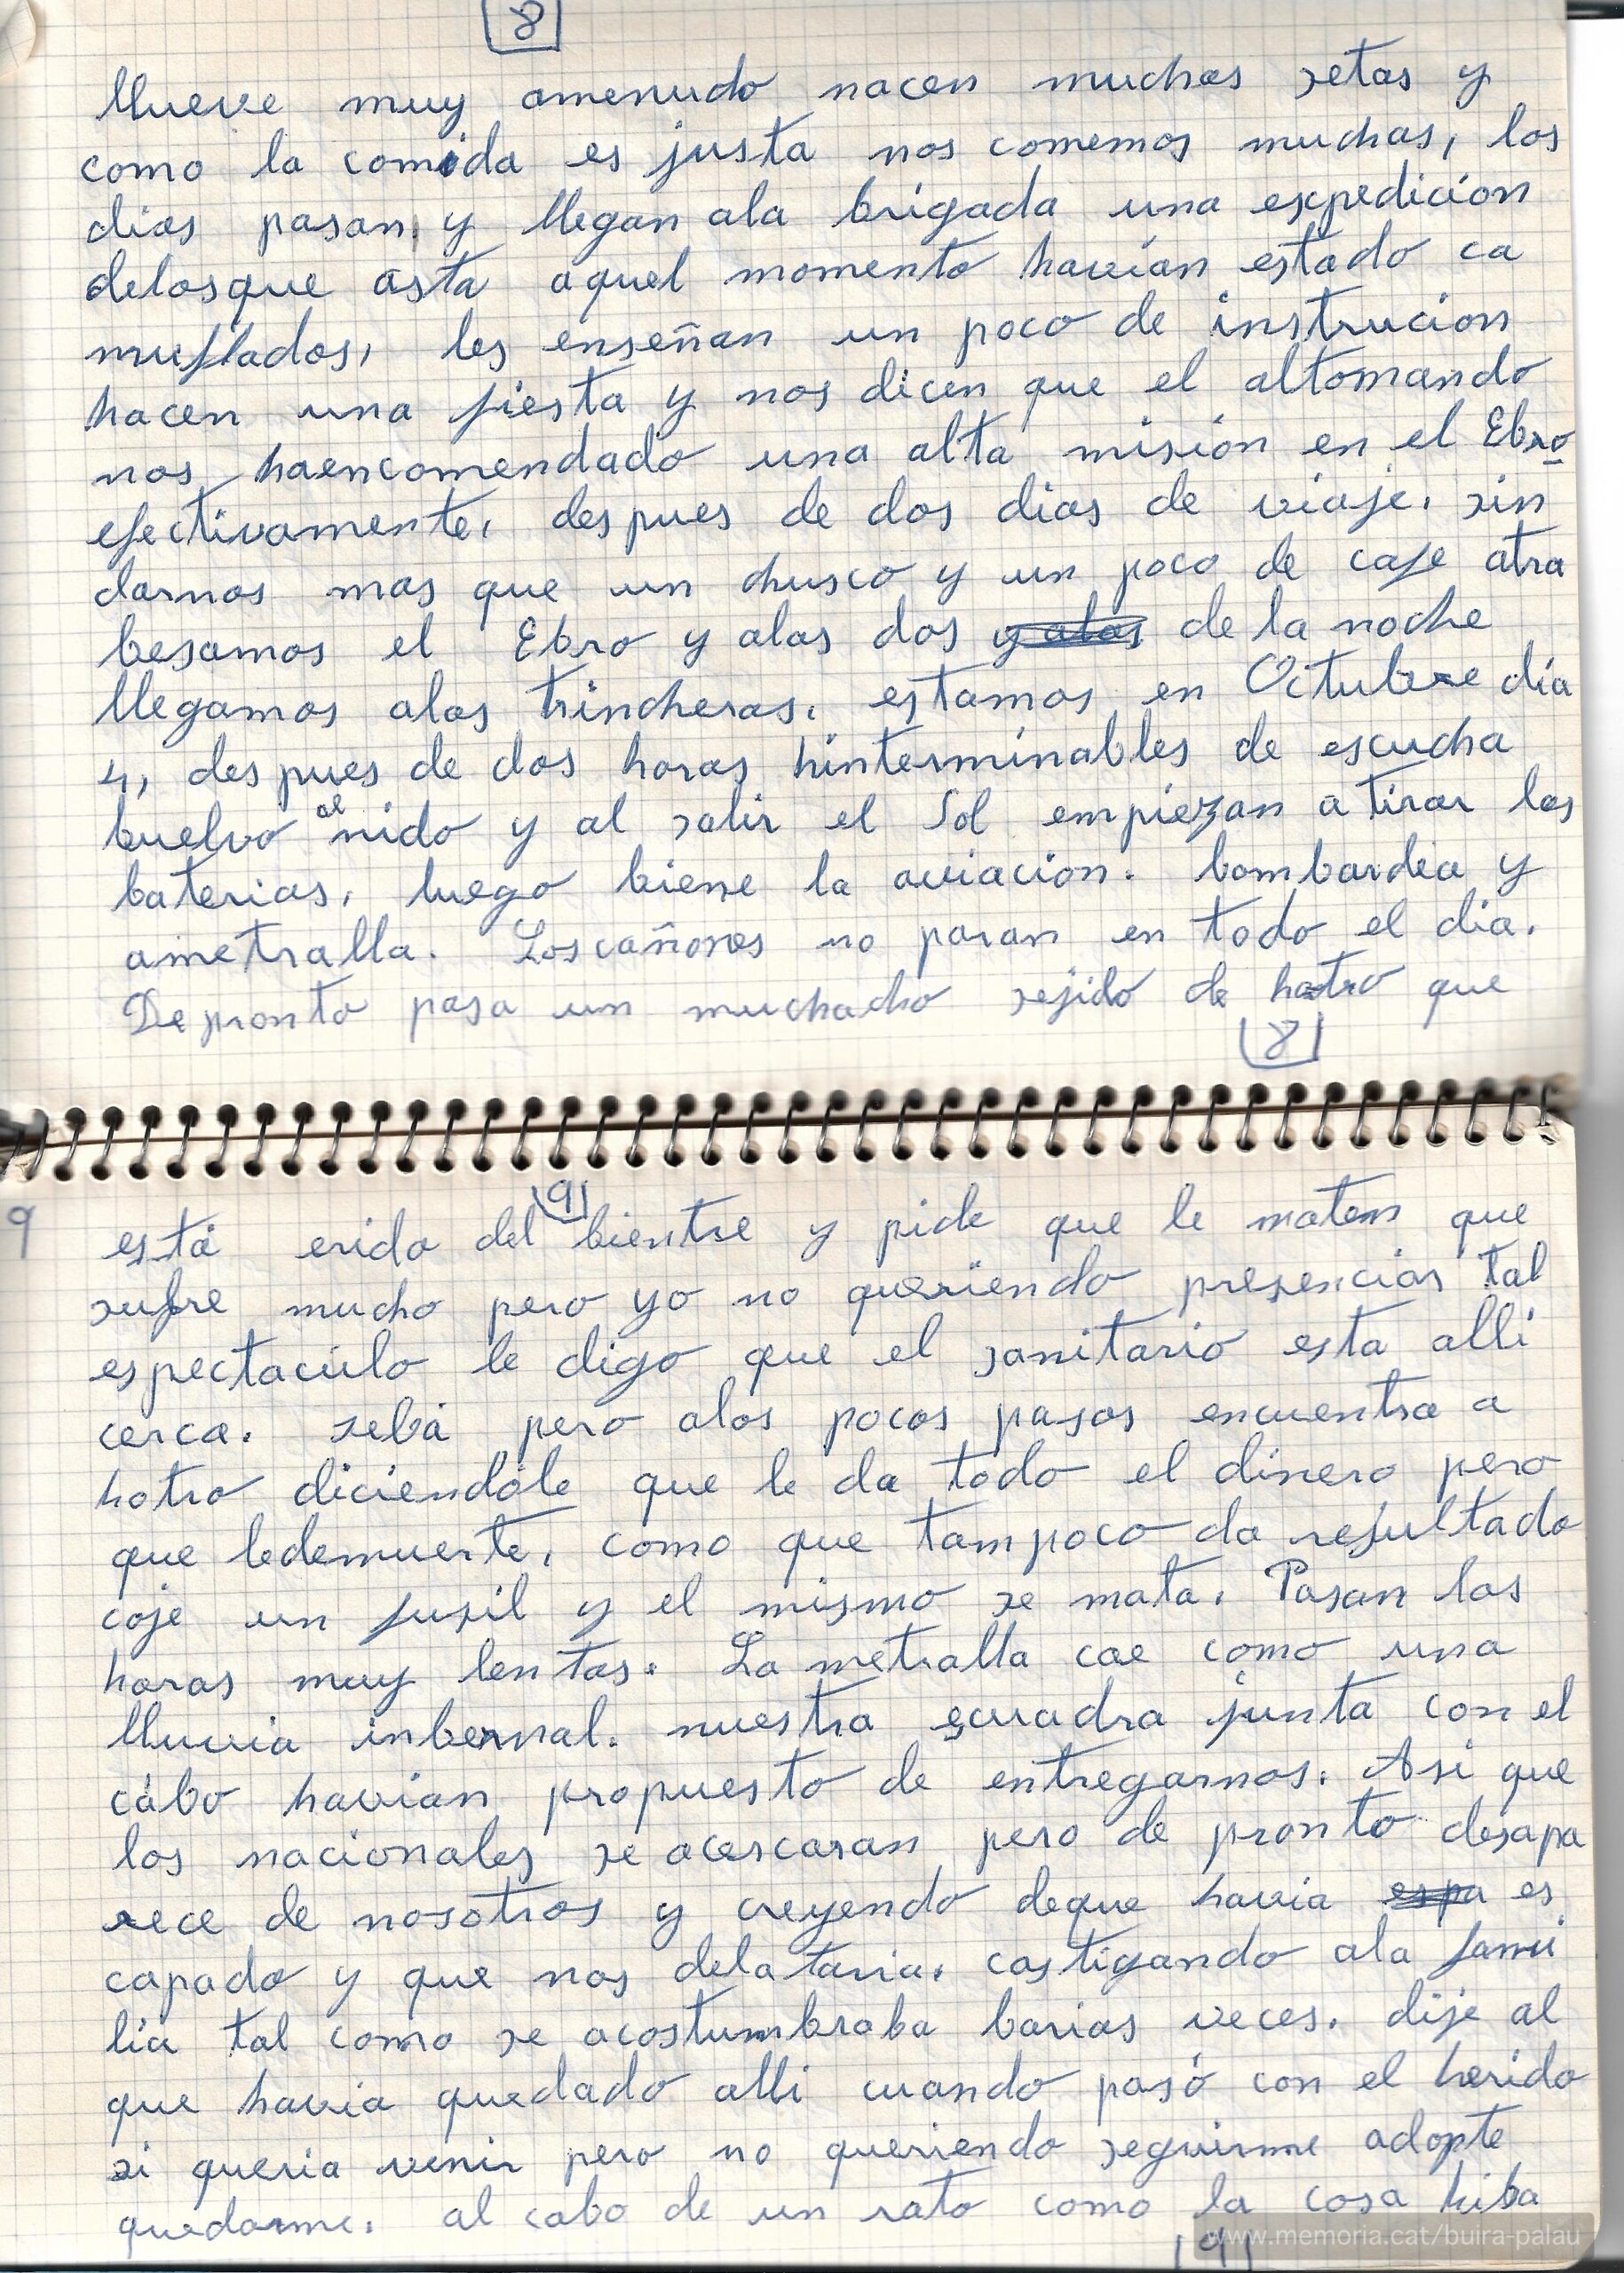 8
llueve muy amenudo nacen muchas setas y
como la comida es justa nos comemos muchas, los
dias pasan, y llegan ala brigada una expedición
delosque asta aquel momento havian estado ca
muflados, les enseñan un poco de instrucion
hacen una fiesta y nos dicen que el altomando
nos haencomendado una alta misión en el Ebro
efectivamente, despues de dos dias de viaje, sin
darnos mas que un chusco y un poco de cafe atra
besamos el Ebro y alas dos y alas de la noche
llegamos alas trincheras, estamos en Octubre día
4, despues de dos horas hinterminables de escucha
buelvo al nido y al salir el Sol empiezan a tirar las
baterias, luego biene la aviacion. bombardea y
ametralla. Los cañones no paran en todo el dia.
De pronto pasa un muchacho sejido de hotro que
8
9
9
está erido del bientre y pide que le maten que
sufre mucho pero yo no queriendo presenciar tal
espectaculo le digo que el sanitario esta alli
cerca. sebá pero alos pocos pasos encuentra a
hotro diciendole que le da todo el dinero pero
que ledemuerte, como que tampoco da resultado
coje un fusil y el mismo se mata. Pasan las
horas muy lentas. La metralla cae como una
lluvia inbernal. nuestra escuadra junta con el
cabo havian propuesto de entregarnos. Asi que
los nacionales se acercaran pero de pronto desapa
rece de nosotros y creyendo deque havia espa es
capado y que nos delataria, castigando ala fami
lia tal como se acostumbraba barias veces. dije al
que havia quedado alli cuando pasó con el herido
si queria venir pero no queriendo seguirme adopte
quedarme. al cabo de un rato como la cosa hiba
9
www.memoria.cat/buira-palau